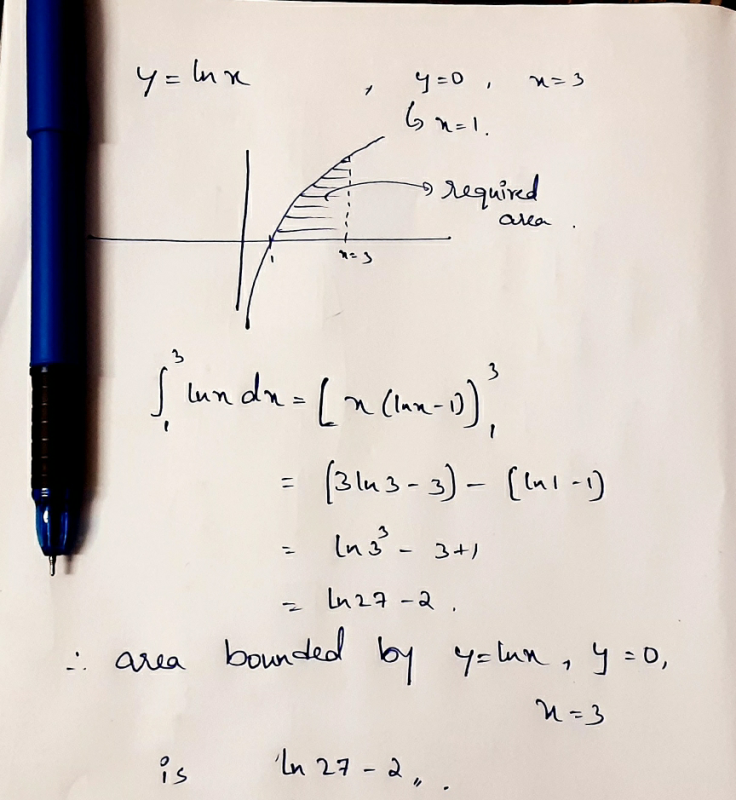 y = ln x , y=0 , x=3
↳ x=1.
required
area .
1 x=3
∫₁³ ln x dx = [x(ln x-1)]₁³
= (3ln3-3) - (ln1-1)
= ln3³ - 3+1
= ln27-2 .
∴ area bounded by y=lnx, y=0,
x=3
is ln 27-2,, .